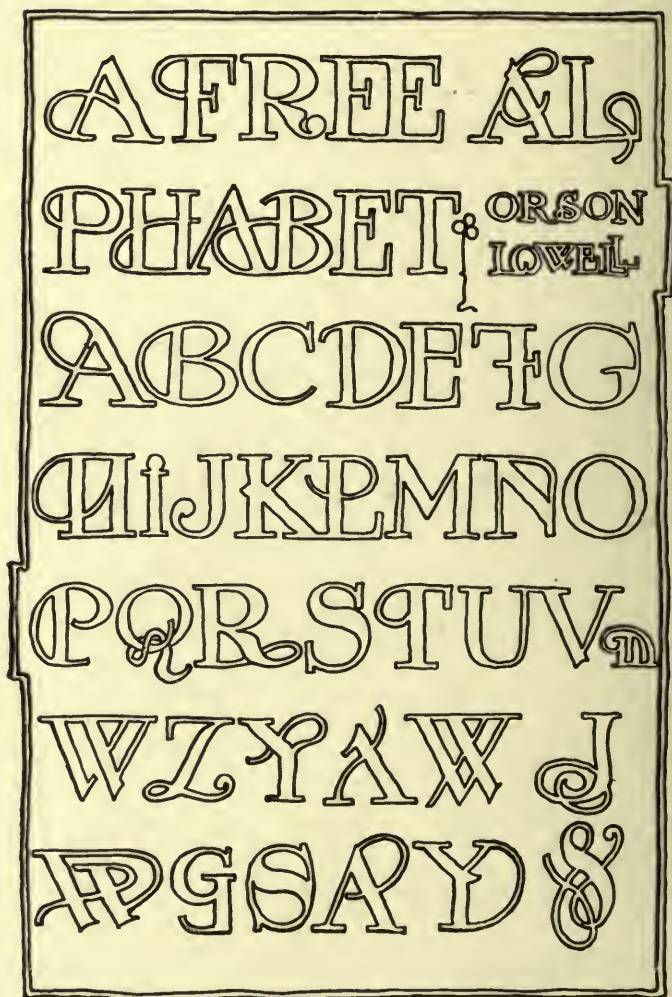 A FREE AL
PHABET
ORSON
LOWELL
ABCDEFG
HIJKLMNO
PQRSTUV
WZYAW J